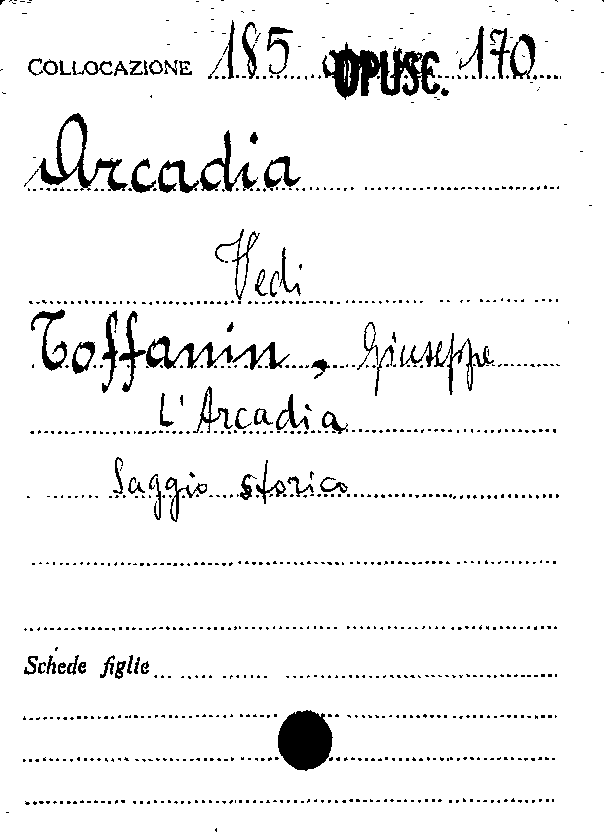 COLLOCAZIONE 185 OPUSC. 170
Arcadia
Vedi
Toffanin, Giuseppe
L'Arcadia
Saggio storico
Schede figlie